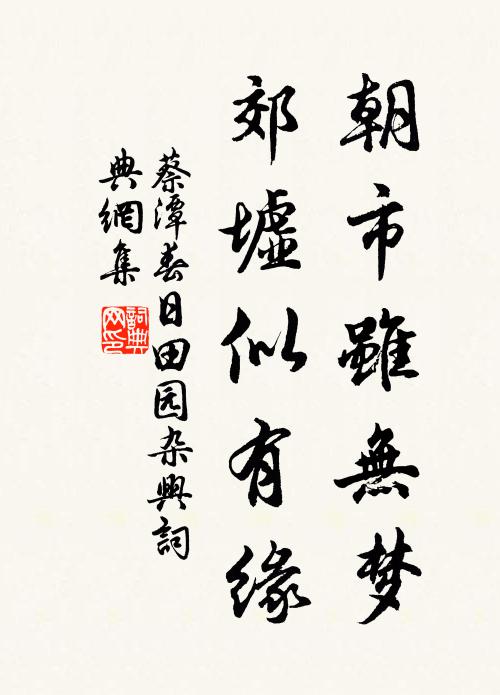 朝市雖無梦
郊墟似有緣
蔡潭春日田园杂興詞
典網集
詞典
网印